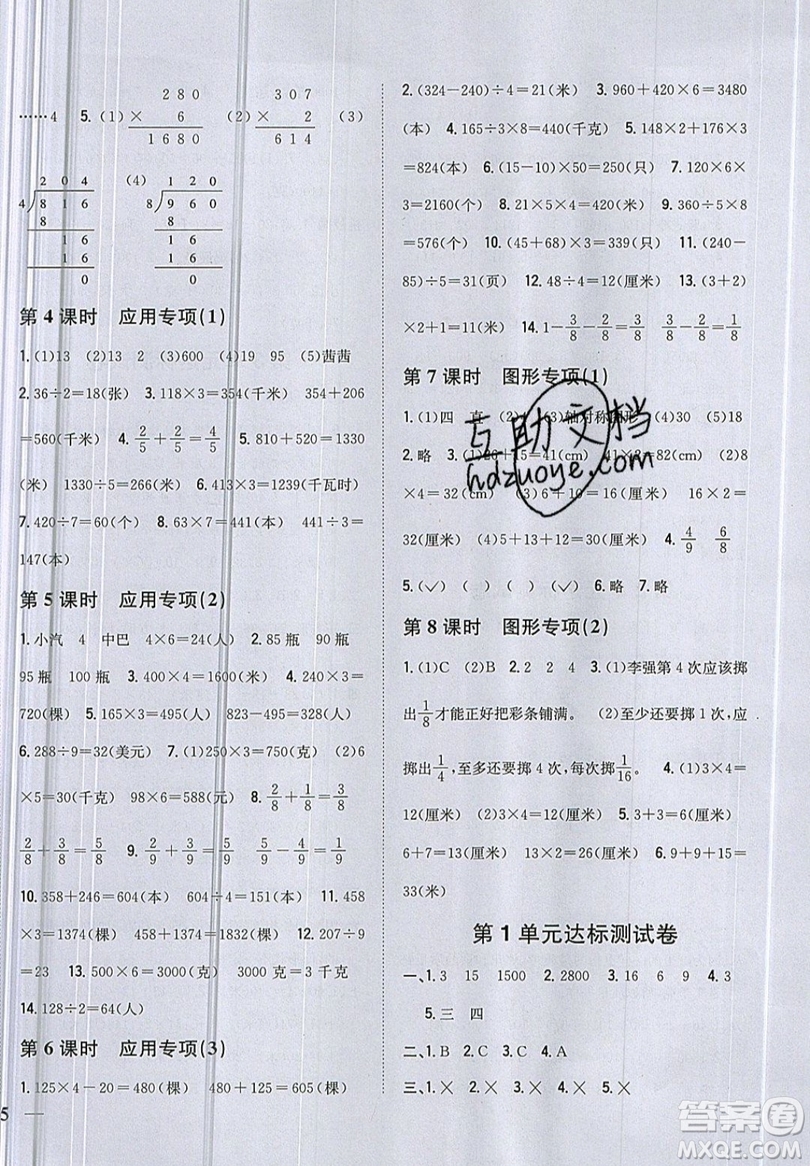 ……4 5.(1) 280 (2) 307 (3)
× 6 × 2
1680 614
204 (4) 120
4 816 8 960
8 8
16 16
16 16
0 0
第4课时 应用专项(1)
1.(1)13 (2)13 2 (3)600 (4)19 95 (5)茜茜
2.36÷2=18(张) 3.118×3=354(千米) 354+206
=560(千米) 4.2/5+2/5=4/5 5.810+520=1330
(米) 1330÷5=266(米) 6.413×3=1239(千瓦时)
7.420÷7=60(个) 8.63×7=441(本) 441÷3=
147(本)
第5课时 应用专项(2)
1.小汽 4 中巴 4×6=24(人) 2.85瓶 90瓶
95瓶 100瓶 3.400×4=1600(米) 4.240×3=
720(棵) 5.165×3=495(人) 823-495=328(人)
6.288÷9=32(美元) 7.(1)250×3=750(克) (2)6
×5=30(千克) 98×6=588(元) 8.2/8+1/8=3/8
2/8+3/8=5/8 9.2/9+2/9=4/9 4/9+4/9=8/9
10.358+246=604(本) 604÷4=151(本) 11.458
×3=1374(棵) 458+1374=1832(棵) 12.(37+9)÷2
=23 13.500×6=3000(克) 3000克=3千克
14.128÷2=64(人)
第6课时 应用专项(3)
1.125×4-20=480(棵) 480+125=605(棵)
5
2.(324-240)÷4=21(米) 3.960+420×6=3480
(本) 4.165÷3×8=440(千克) 5.148×2+176×3
=824(本) 6.(15-10)×50=250(米) 7.90×8×
3=2160(个) 8.21×5×4=420(米) 9.360÷5×8
=576(个) 10.56÷8×3=21(个) 11.(240-
85)÷5=31(页) 12.48÷4=12(厘米) 13.(3+2)
×2+1=11(米) 14.1-3/8-2/8=3/8 3/8-2/8=1/8
第7课时 图形专项(1)
1.(1)四 直 (2)4 (3)轴对称图形 (4)30 (5)18
2.略 3.(1)26+15=41(cm) (2)8
×4=32(cm) (3)6+10=16(厘米) 16×2=
32(厘米) (4)5+13+12=30(厘米) 4.4/9 6/8
5.(✓) ( ) ( ) (✓) 6.略 7.略
第8课时 图形专项(2)
1.(1)C (2)B 2.2 2 4 3.(1)李强第4次应该掷
出1/8才能正好把彩条铺满。 (2)至少还要掷1次,应
掷出1/4,最多还要掷4次,每次掷1/16。 4.(1)3×4=12
(厘米) (2)3×4=12(厘米) 5.3+3=6(厘米)
6+7=13(厘米) 13×2=26(厘米) 6.8+9+9+7=
33(米)
第1单元达标测试卷
一、1.3 15 1500 2.2800 3.16 6 9 4.3
5.三 四
二、1.B 2.C 3.C 4.A
三、1.× 2.× 3.× 4.× 5.×
互助文档
hdzuoye.com
答案圈
MXQE.COM